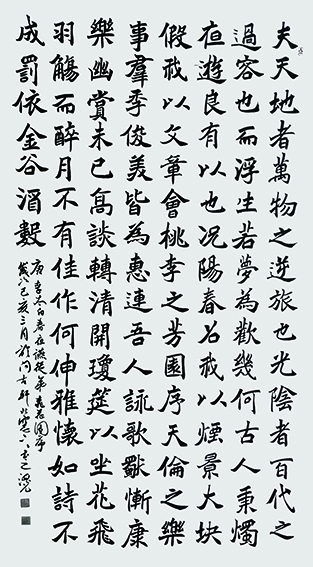 夫天地者萬物之逆旅也光陰者百代之
過客也而浮生若夢為歡幾何古人秉燭
夜遊良有以也况陽春召我以煙景大块
假我以文章會桃李之芳園序天倫之樂
事羣季俊美皆為惠連吾人詠歌獨慚康
樂幽賞未已高談轉清開瓊筵以坐花飛
羽觴而醉月不有佳作何伸雅懷如詩不
成罰依金谷酒數
唐李太白春夜宴從弟桃花園序
歲次己亥三月於问古軒